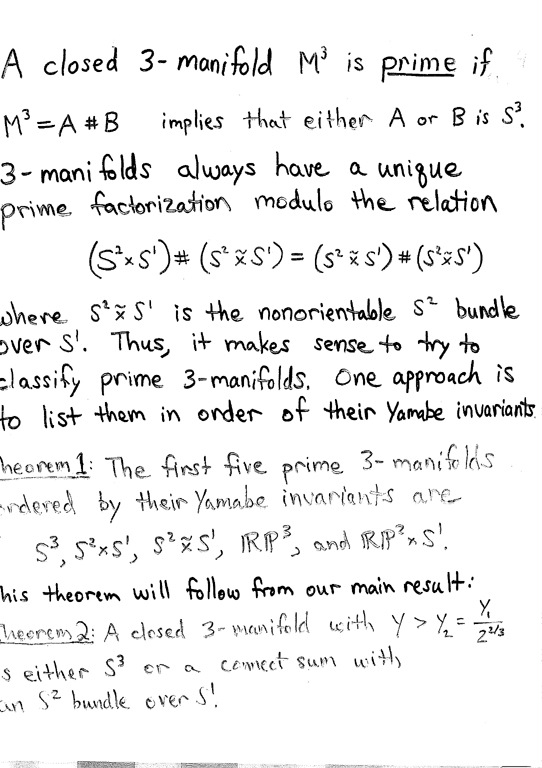 A closed 3-manifold M³ is prime if
M³ = A # B implies that either A or B is S³.
3-manifolds always have a unique
prime factorization modulo the relation
(S²×S¹) # (S² ×̃ S¹) = (S² ×̃ S¹) # (S² ×̃ S¹)
where S² ×̃ S¹ is the nonorientable S² bundle
over S¹. Thus, it makes sense to try to
classify prime 3-manifolds. One approach is
to list them in order of their Yamabe invariants
heorem 1: The first five prime 3-manifolds
ordered by their Yamabe invariants are
S³, S²×S¹, S² ×̃ S¹, ℝℙ³, and ℝℙ²×S¹.
his theorem will follow from our main result:
Theorem 2: A closed 3-manifold with Y > Y₂ = Y₁/2^{2/3}
s either S³ or a connect sum with
an S² bundle over S¹.